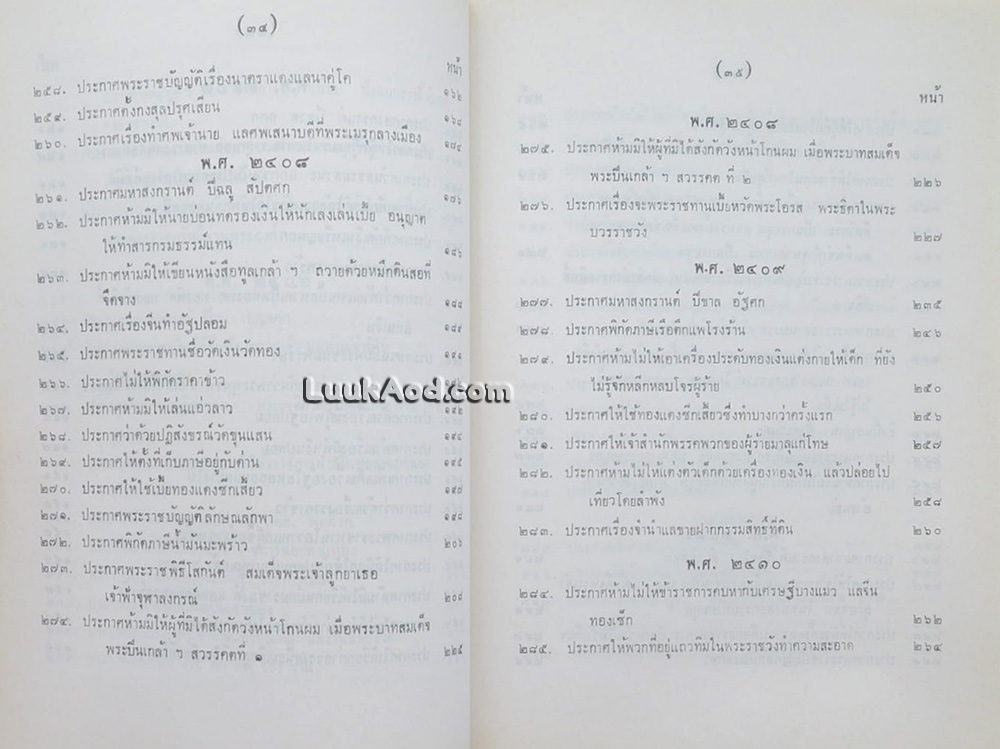 (๓๔)
หน้า
๒๕๘. ประกาศพระราชบัญญัติเรื่องนาตราแดงแลนาคู่โค ๑๖๒
๒๕๙. ประกาศตั้งกงสุลปรุศเสียน ๑๖๘
๒๖๐. ประกาศเรื่องทำศพเจ้านาย แลศพเสนาบดีที่พระเมรุกลางเมือง ๑๗๔
พ.ศ. ๒๔๐๘
๒๖๑. ประกาศมหาสงกรานต์ ปีฉลู สัปตศก ๑๗๖
๒๖๒. ประกาศห้ามมิให้นายบ่อนทดรองเงินให้นักเลงเล่นเบี้ย อนุญาต
ให้ทำสารกรมธรรม์แทน ๑๘๖
๒๖๓. ประกาศห้ามมิให้เขียนหนังสือทูลเกล้า ฯ ถวายด้วยหมึกดินสอที่
จืดจาง ๑๘๘
๒๖๔. ประกาศเรื่องจีนทำอัฐปลอม ๑๘๙
๒๖๕. ประกาศพระราชทานชื่อวัดเงินวัดทอง ๑๙๑
๒๖๖. ประกาศไม่ให้พิกัดราคาข้าว
LuukAod.com
๒๖๗. ประกาศห้ามมิให้เล่นแอ่วลาว ๑๙๒
๒๖๘. ประกาศว่าด้วยปฏิสังขรณ์วัดขุนแสน ๑๙๔
๒๖๙. ประกาศให้ตั้งที่เก็บภาษีอยู่กับด่าน ๑๙๕
๒๗๐. ประกาศให้ใช้เบี้ยทองแดงซีกเสี้ยว ๑๙๗
๒๗๑. ประกาศพระราชบัญญัติลักษณลักพา ๑๙๘
๒๗๒. ประกาศพิกัดภาษีน้ำมันมะพร้าว ๒๐๖
๒๗๓. ประกาศพระราชพิธีโสกันต์ สมเด็จพระเจ้าลูกยาเธอ
เจ้าฟ้าจุฬาลงกรณ์ ๒๐๙
๒๗๔. ประกาศห้ามมิให้ผู้ที่มิได้สังกัดวังหน้าโกนผม เมื่อพระบาทสมเด็จ
พระปิ่นเกล้า ฯ สวรรคตที่ ๑ ๒๒๕
(๓๕)
หน้า
พ.ศ. ๒๔๐๘
๒๗๕. ประกาศห้ามมิให้ผู้ที่มิได้สังกัดวังหน้าโกนผม เมื่อพระบาทสมเด็จ
พระปิ่นเกล้า ฯ สวรรคต ที่ ๒ ๒๒๖
๒๗๖. ประกาศเรื่องจะพระราชทานเบี้ยหวัดพระโอรส พระธิดาในพระ
บวรราชวัง ๒๒๗
พ.ศ. ๒๔๐๙
๒๗๗. ประกาศมหาสงกรานต์ ปีขาล อัฐศก ๒๓๕
๒๗๘. ประกาศพิกัดภาษีเรือตึกแพโรงร้าน ๒๔๖
๒๗๙. ประกาศห้ามไม่ให้เอาเครื่องประดับทองเงินแต่งกายให้เด็ก ที่ยัง
ไม่รู้จักหลีกหลบโจรผู้ร้าย ๒๕๐
๒๘๐. ประกาศให้ใช้ทองแดงซีกเสี้ยวซึ่งทำบางกว่าครั้งแรก ๒๕๖
๒๘๑. ประกาศให้เจ้าสำนักพรรคพวกของผู้ร้ายมาลุแก่โทษ ๒๕๗
๒๘๒. ประกาศห้ามไม่ให้แต่งตัวเด็กด้วยเครื่องทองเงิน แล้วปล่อยไป
เที่ยวโดยลำพัง ๒๕๘
๒๘๓. ประกาศเรื่องจำนำแลขายฝากกรรมสิทธิ์ที่ดิน ๒๖๐
พ.ศ. ๒๔๑๐
๒๘๔. ประกาศห้ามไม่ให้ข้าราชการคบหากับเศรษฐีบางแมว แลจีน
ทองเซ็ก ๒๖๒
๒๘๕. ประกาศให้พวกที่อยู่แถวทิมในพระราชวังทำความสะอาด ๒๖๔